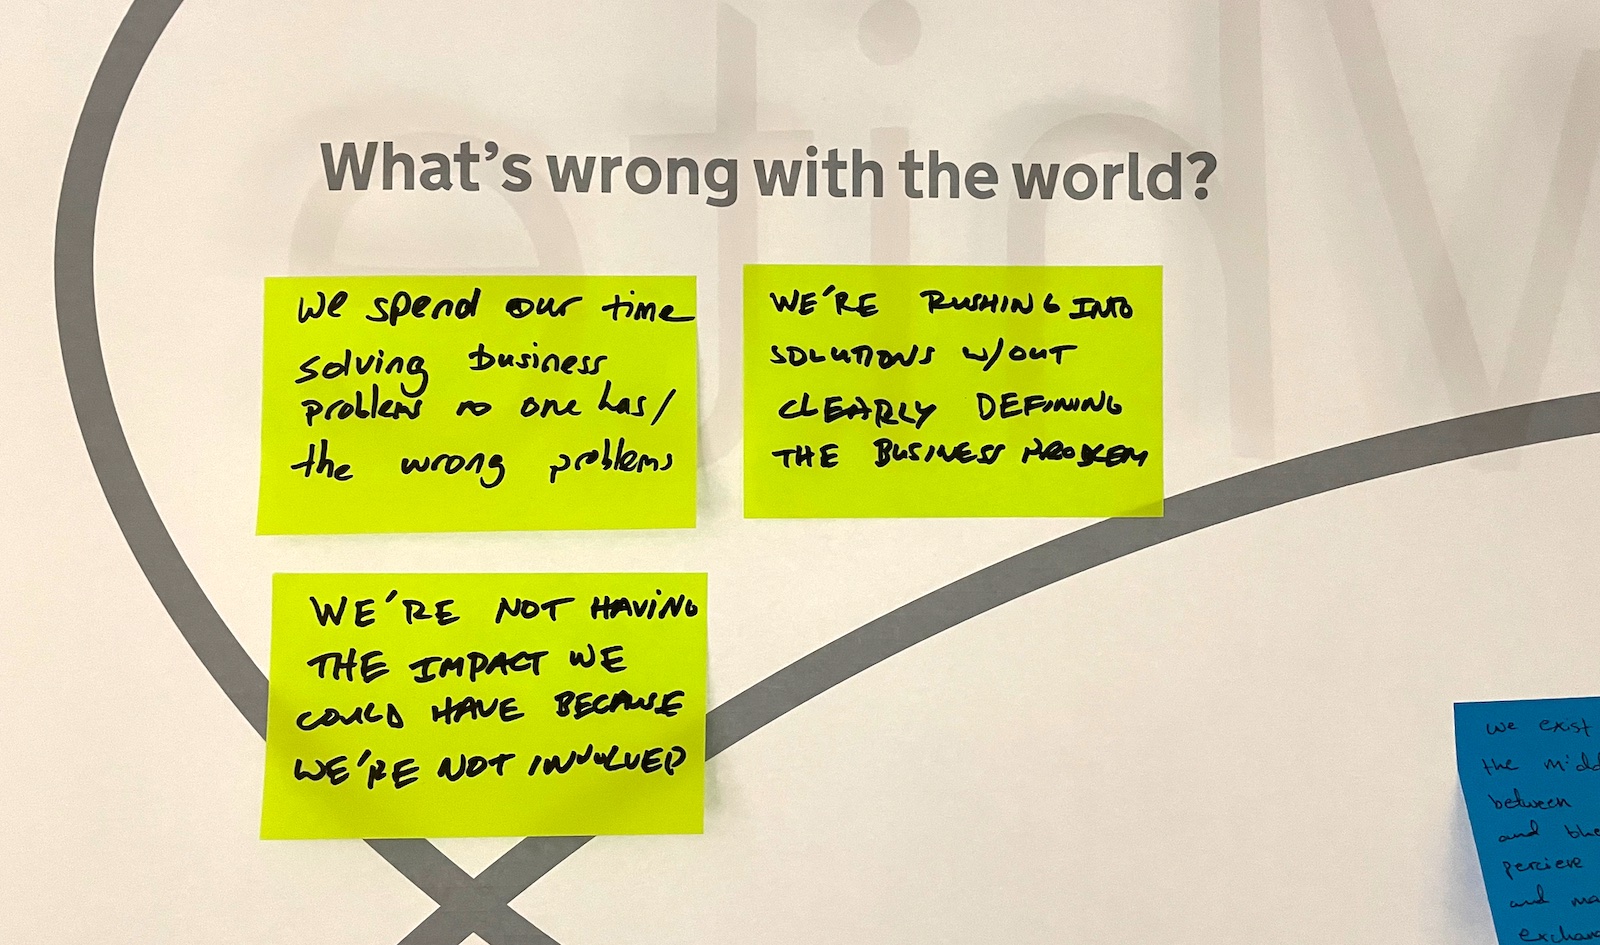 What's wrong with the world?
we spend our time
solving business
problems no one has/
the wrong problems
WE'RE RUSHING INTO
SOLUTIONS w/OUT
CLEARLY DEFINING
THE BUSINESS PROBLEM
WE'RE NOT HAVING
THE IMPACT WE
COULD HAVE BECAUSE
WE'RE NOT INVOLVED
we exist
the
between
and
percieve
and